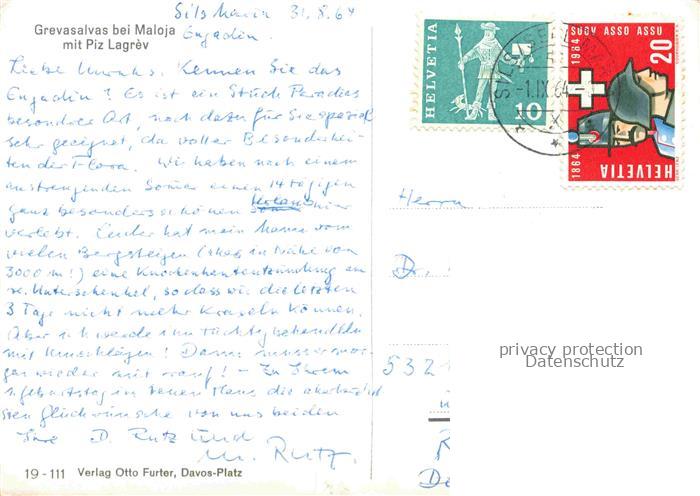 Sils Maria 31.8.64
Engadin.
Grevasalvas bei Maloja
mit Piz Lagrèv
Liebe Kennen Sie das
Engadin? Es ist ein Stück Paradies
besondrer Art, noch dazu für Sie speziell
sehr geeignet, da voller Besonderhei-
ten der Flora. Wir haben nach einem
anstrengenden Sommer einen 14 tägigen
ganz besonders schönen hier
verlebt. Leider hat mein Mann vom
vielen Bergsteigen (in Nähe von
3000 m!) eine Knochenhautentzündung am
re. Unterschenkel, so dass wir die letzten
3 Tage nicht mehr Kraxeln können.
Aber ich werde ihn tüchtig behandeln
mit Umschlägen! Dann
wieder auf! - Zu Ihrem
Geburtstag im neuen Haus die
sten Glückwünsche von uns beiden
Ihre D. Rutz und
M. Rutz.
19 - 111 Verlag Otto Furter, Davos-Platz
HELVETIA
10
1864 SUOV ASSO ASSU 1964
20
HELVETIA
-1.IX.64
Herrn
Dr.
532
privacy protection
Datenschutz